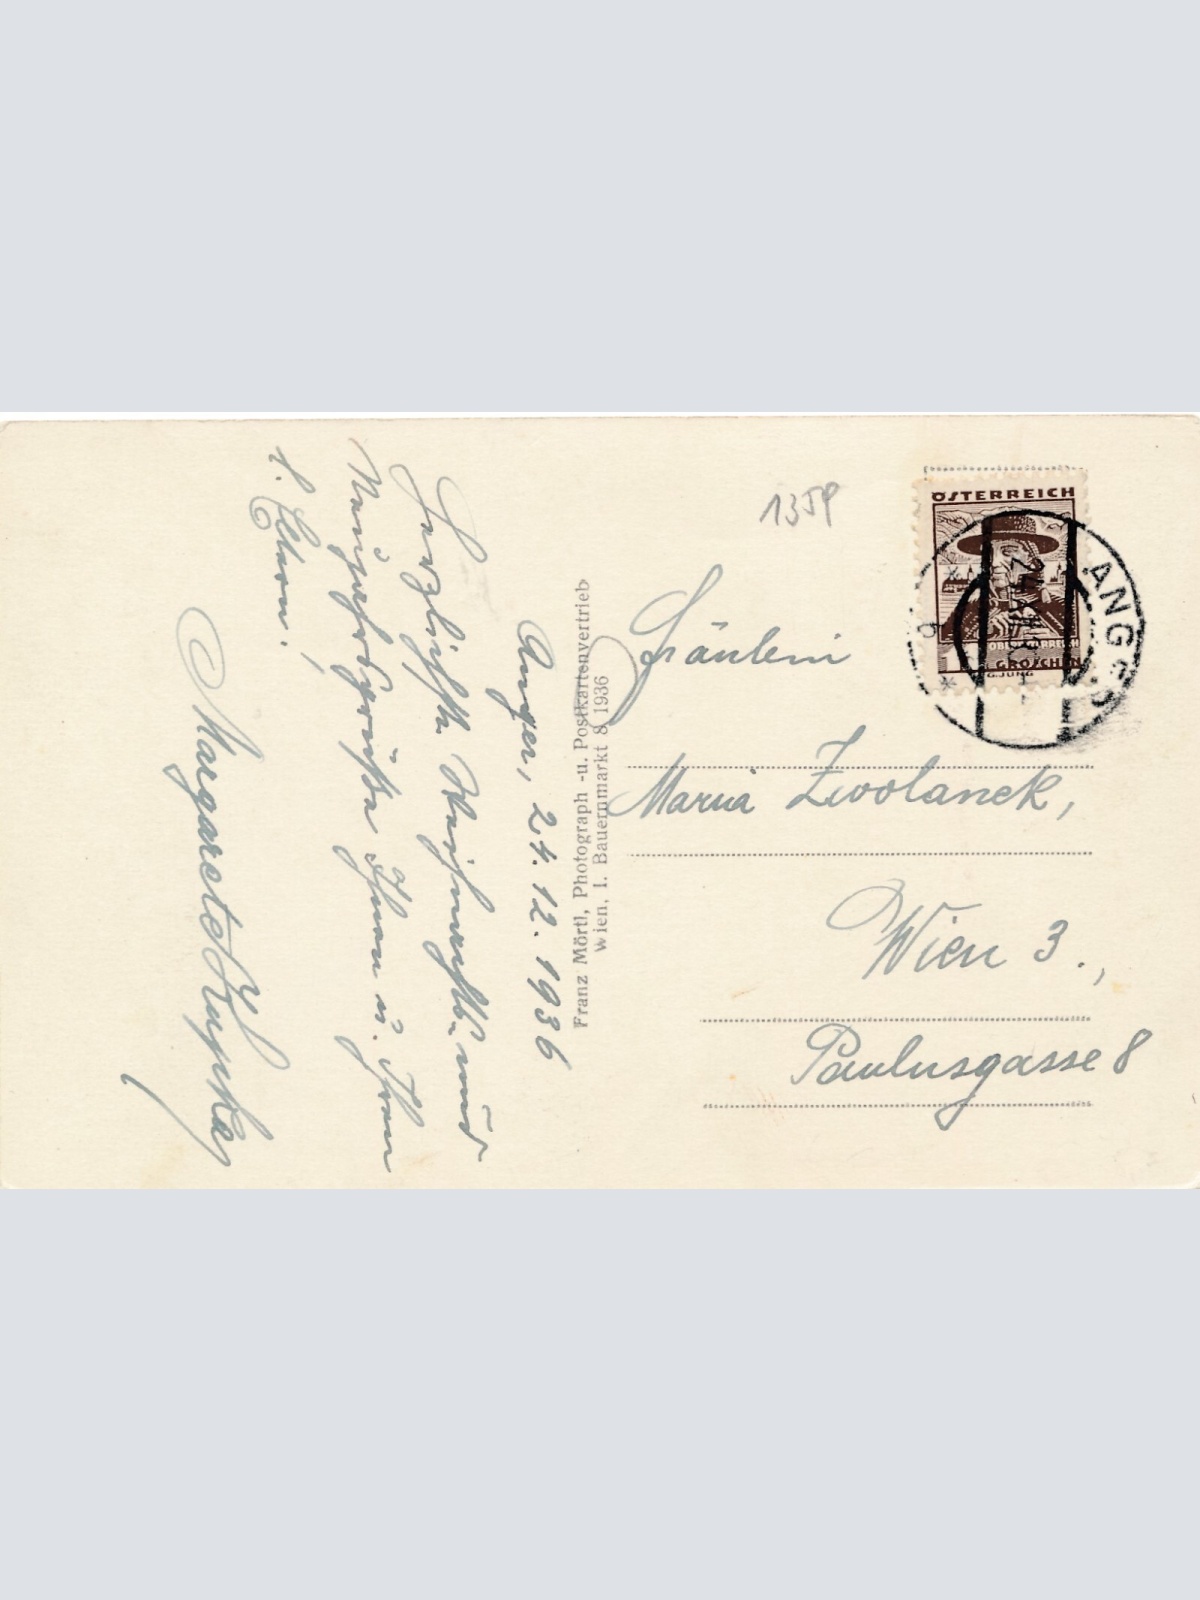 Anger, 24.12.1936
Herzlichste Weihnachts- und
Neujahrsgrüße Ihnen u. Ihren
l. Eltern!
Margarete
Franz Mörtl, Photograph -u. Postkartenvertrieb
Wien, I. Bauernmarkt 8, 1936
1359
ÖSTERREICH
GROSCHEN
G.JUNG
ANGER
Fräulein
Maria Zwolanek,
Wien 3.,
Paulusgasse 8